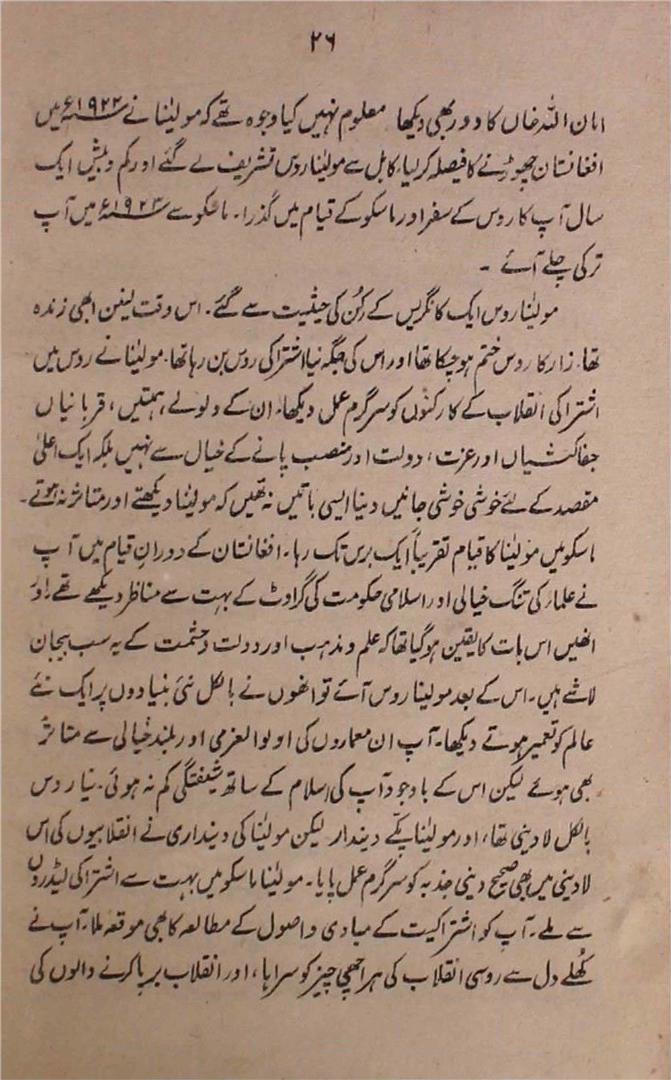 ۲۶
امان اللہ خاں کا دور بھی دیکھا معلوم نہیں کیا وجوہ تھے کہ مولینا نے ۱۹۲۲ء میں
افغانستان چھوڑنے کا فیصلہ کر لیا، کابل سے مولینا روس تشریف لے گئے اور کم و بیش ایک
سال آپ کا روس کے سفر اور ماسکو کے قیام میں گذرا۔ ماسکو سے ۱۹۲۳ء میں آپ
ترکی چلے آئے ۔
مولینا روس ایک کانگریس کے رکن کی حیثیت سے گئے۔ اس وقت لینن ابھی زندہ
تھا۔ زار کا روس ختم ہو چکا تھا اور اس کی جگہ نیا اشتراکی روس بن رہا تھا۔ مولینا نے روس میں
اشتراکی انقلاب کے کارکنوں کو سرگرم عمل دیکھا، ان کے ولولے، ہمتیں، قربانیاں
جفاکشیاں اور عزت، دولت اور منصب پانے کے خیال سے نہیں بلکہ ایک اعلیٰ
مقصد کے لئے خوشی خوشی جانیں دینا ایسی باتیں نہ تھیں کہ مولینا دیکھتے اور متاثر نہ ہوتے۔
ماسکو میں مولینا کا قیام تقریباً ایک برس تک رہا۔ افغانستان کے دوران قیام میں آپ
نے علماء کی تنگ خیالی اور اسلامی حکومت کی گراوٹ کے بہت سے مناظر دیکھے تھے اور
انھیں اس بات کا یقین ہو گیا تھا کہ علم و مذہب اور دولت و حشمت کے یہ سب بیجان
لاشے ہیں۔ اس کے بعد مولینا روس آئے تو انھوں نے بالکل نئی بنیادوں پر ایک نئے
عالم کو تعمیر ہوتے دیکھا۔ آپ ان معماروں کی اولو العزمی اور بلند خیالی سے متاثر
بھی ہوئے لیکن اس کے باوجود آپ کی اسلام کے ساتھ شیفتگی کم نہ ہوئی۔ نیا روس
بالکل لادینی تھا، اور مولینا پکے دیندار لیکن مولینا کی دینداری نے انقلابیوں کی اس
لادینی میں بھی صحیح دینی جذبہ کو سرگرم عمل پایا۔ مولینا ماسکو میں بہت سے اشتراکی لیڈروں
سے ملے۔ آپ کو اشتراکیت کے مبادی و اصول کے مطالعہ کا بھی موقعہ ملا۔ آپ نے
کھلے دل سے روسی انقلاب کی ہر اچھی چیز کو سراہا، اور انقلاب برپا کرنے والوں کی